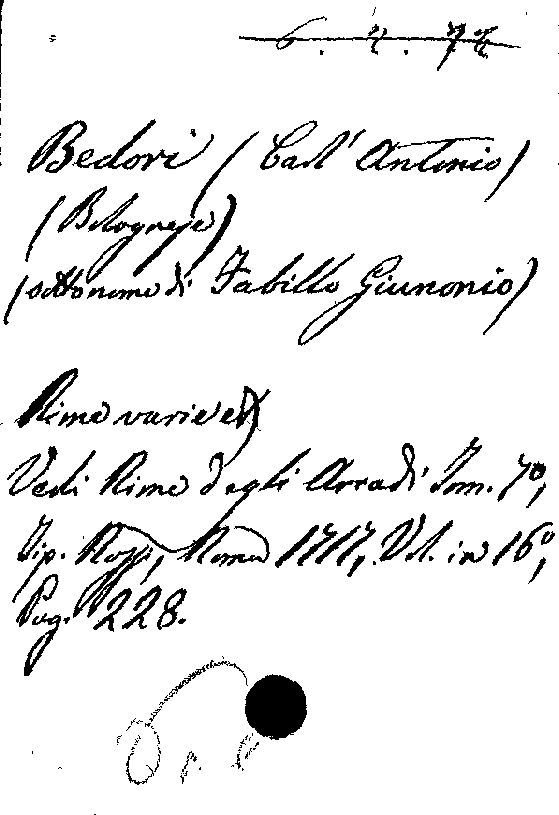 6. 2. 72
Bedori (Carl' Antonio)
(Bolognese)
(sotto nome di Fabillo Giunonio)
Rime varie
Vedi Rime degli Arcadi Tom. 7º,
Tip. Rossi, Roma 1717, Vol. in 16º,
Pag. 228.